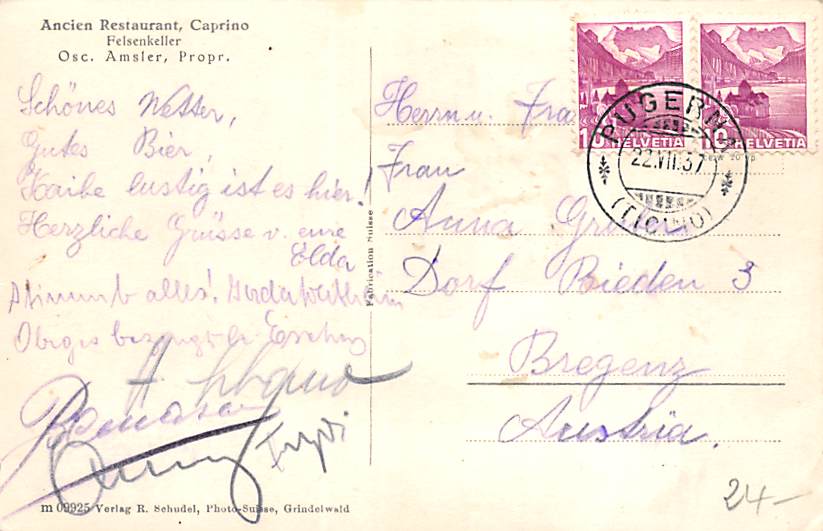 Ancien Restaurant, Caprino
Felsenkeller
Osc. Amsler, Propr.
Schönes Wetter,
Gutes Bier,
Kaibe lustig ist es hier!
Herzliche Grüsse v. eure
Elda
Stimmt alles!
Obiges bezeugt
Fabrication Suisse
m 09925 Verlag R. Schudel, Photo-Suisse, Grindelwald
10 HELVETIA
10 HELVETIA
PUGERNA
22.VII.37
(TICINO)
Herrn u. Fra
Frau
Anna
Dorf Rieden 3
Bregenz
Austria.
24-